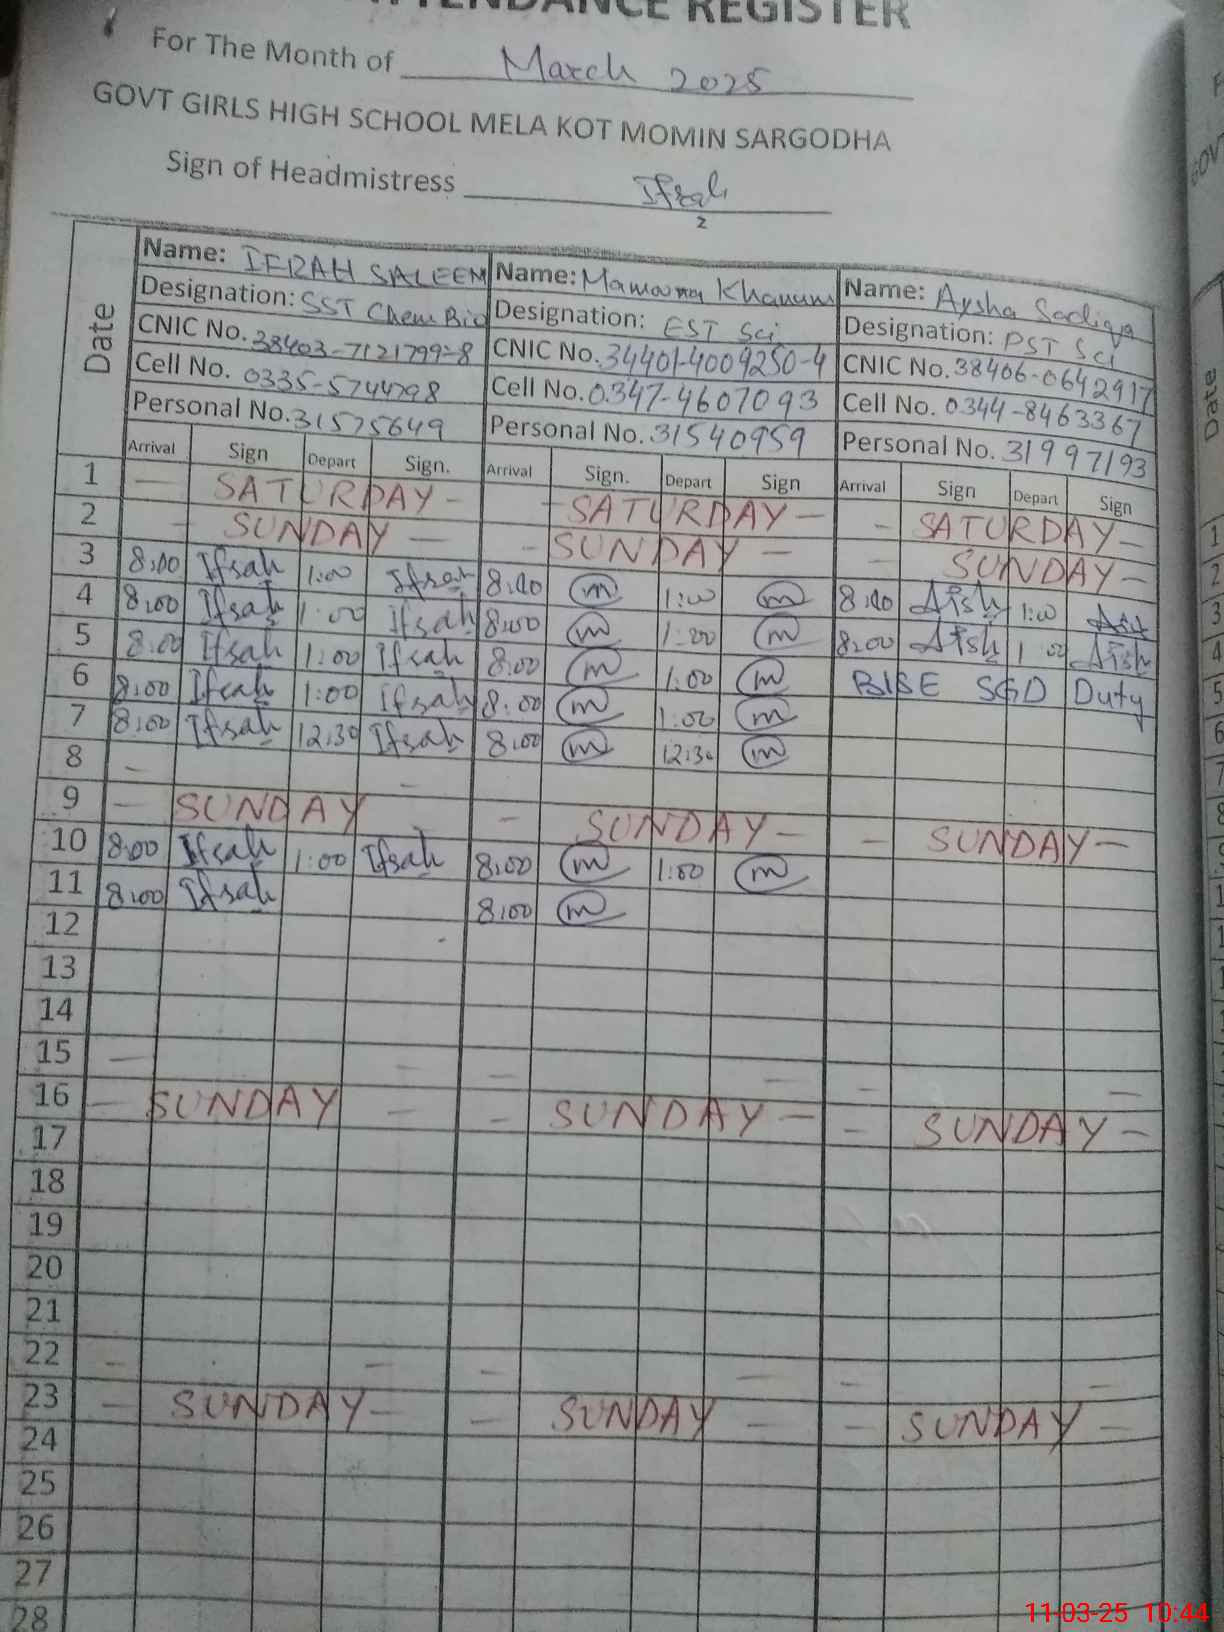 ATTENDANCE REGISTER
For The Month of March 2025
GOVT GIRLS HIGH SCHOOL MELA KOT MOMIN SARGODHA
Sign of Headmistress Ifrah
Date
Name: IFRAH SALEEM Name: Mamoona Khanum Name: Aysha Sadiqa
Designation: SST Chem Bio Designation: EST Sci Designation: PST Sci
CNIC No. 38403-7121799-8 CNIC No. 34401-4009250-4 CNIC No. 38406-0642917
Cell No. 0335-5744798 Cell No. 0347-4607093 Cell No. 0344-8463367
Personal No. 31575649 Personal No. 31540959 Personal No. 31997193
Arrival Sign Depart Sign. Arrival Sign. Depart Sign Arrival Sign Depart Sign
1 — SATURDAY - - SATURDAY - - SATURDAY -
2 - SUNDAY — - SUNDAY - - SUNDAY -
3 8:00 Ifrah 1:00 Ifrah 8:00 m 1:00 m 8:00 Aish 1:00 Aish
4 8:00 Ifrah 1:00 Ifrah 8:00 m 1:00 m 8:00 Aish 1:00 Aish
5 8:00 Ifrah 1:00 Ifrah 8:00 m 1:00 m BISE SGD Duty
6 8:00 Ifrah 1:00 Ifrah 8:00 m 1:00 m
7 8:00 Ifrah 12:30 Ifrah 8:00 m 12:30 m
8 - -
9 — SUNDAY - - SUNDAY - - SUNDAY -
10 8:00 Ifrah 1:00 Ifrah 8:00 m 1:00 m
11 8:00 Ifrah 8:00 m
12
13
14
15 — — — — — —
16 — SUNDAY — - SUNDAY - — SUNDAY -
17
18
19
20
21
22 — — — — — —
23 — SUNDAY - — SUNDAY — - SUNDAY -
24
25
26
27
28
11-03-25 10:44